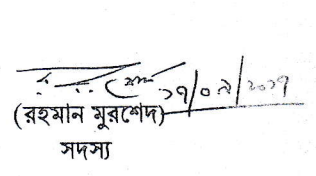 ১৭/০৯/২০১৭
(রহমান মুরশেদ)
সদস্য